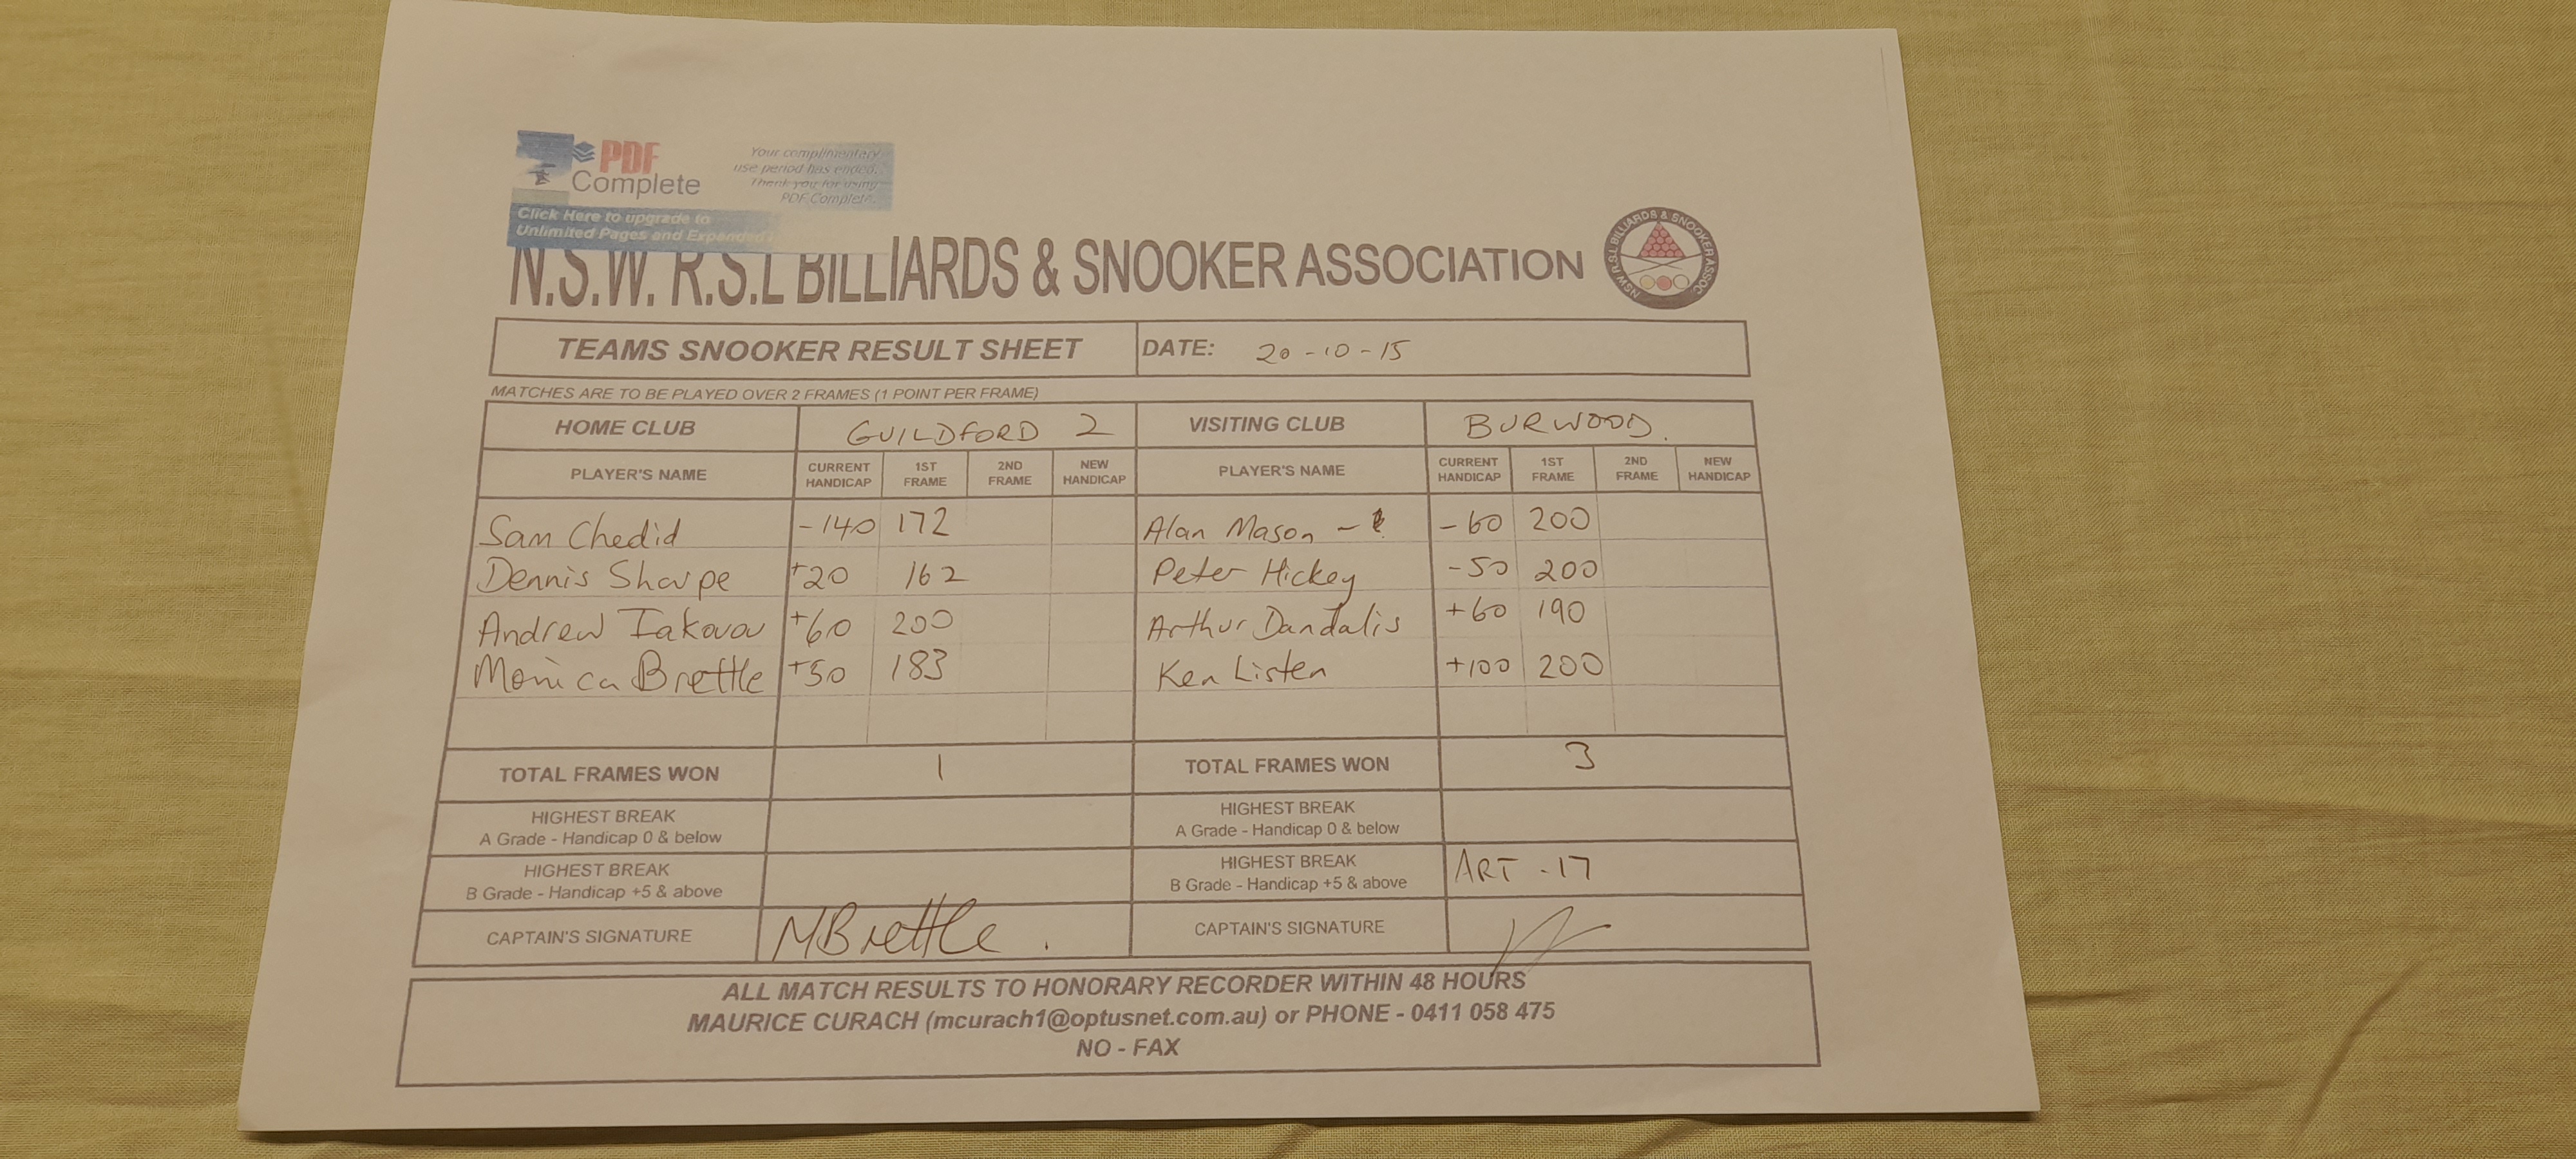 PDF
Complete
Your complimentary
use period has ended.
Thank you for using
PDF Complete.
Click Here to upgrade to
Unlimited Pages and Expanded
N.S.W. R.S.L BILLIARDS & SNOOKER ASSOCIATION
NSW R.S.L BILLIARDS & SNOOKER ASSOC
TEAMS SNOOKER RESULT SHEET DATE: 20-10-15
MATCHES ARE TO BE PLAYED OVER 2 FRAMES (1 POINT PER FRAME)
HOME CLUB GUILDFORD 2 VISITING CLUB BURWOOD.
PLAYER'S NAME CURRENT HANDICAP 1ST FRAME 2ND FRAME NEW HANDICAP PLAYER'S NAME CURRENT HANDICAP 1ST FRAME 2ND FRAME NEW HANDICAP
Sam Chedid -140 172 Alan Mason - -60 200
Dennis Sharpe +20 162 Peter Hickey -50 200
Andrew Iakovou +60 200 Arthur Dandalis +60 190
Monica Brettle +50 183 Ken Listen +100 200
TOTAL FRAMES WON 1 TOTAL FRAMES WON 3
HIGHEST BREAK HIGHEST BREAK
A Grade - Handicap 0 & below A Grade - Handicap 0 & below
HIGHEST BREAK HIGHEST BREAK
B Grade - Handicap +5 & above B Grade - Handicap +5 & above ART -17
CAPTAIN'S SIGNATURE MBrettle. CAPTAIN'S SIGNATURE
ALL MATCH RESULTS TO HONORARY RECORDER WITHIN 48 HOURS
MAURICE CURACH (mcurach1@optusnet.com.au) or PHONE - 0411 058 475
NO - FAX